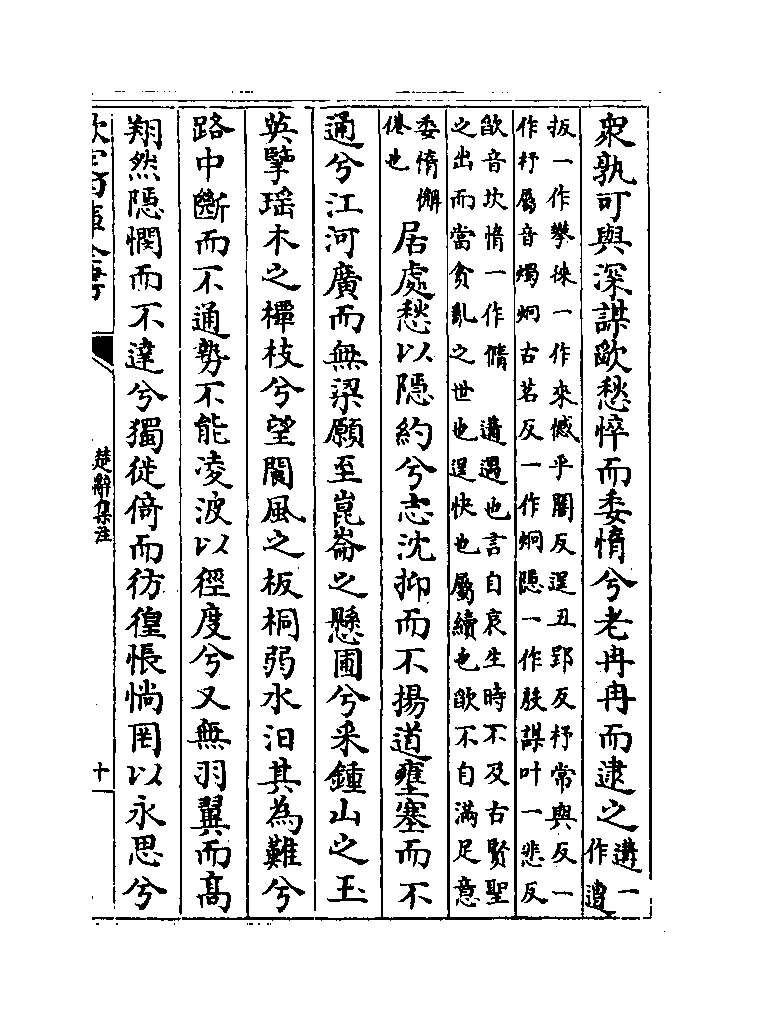 衆孰可與深謀欿愁悴而委惰兮老冉冉而逮之遘一作遭
扳一作攀徠一作來憾乎闇反逞丑郢反杼常與反一
作杼屬音燭炯古茗反一作炯隱一作殷謀叶一悲反
欿音坎惰一作惰　遘遇也言自哀生時不及古賢聖
之出而當貪亂之世也逞快也屬續也欿不自滿足意
委惰懈倦也　居處愁以隱約兮志沈抑而不揚道壅塞而不
通兮江河廣而無梁願至崑崙之懸圃兮采鍾山之玉
英擥瑶木之橝枝兮望閬風之板桐弱水汩其為難兮
路中斷而不通勢不能凌波以徑度兮又無羽翼而高
翔然隱憫而不達兮獨徙倚而彷徨悵惝罔以永思兮
欽定四庫全書
楚辭集注
十